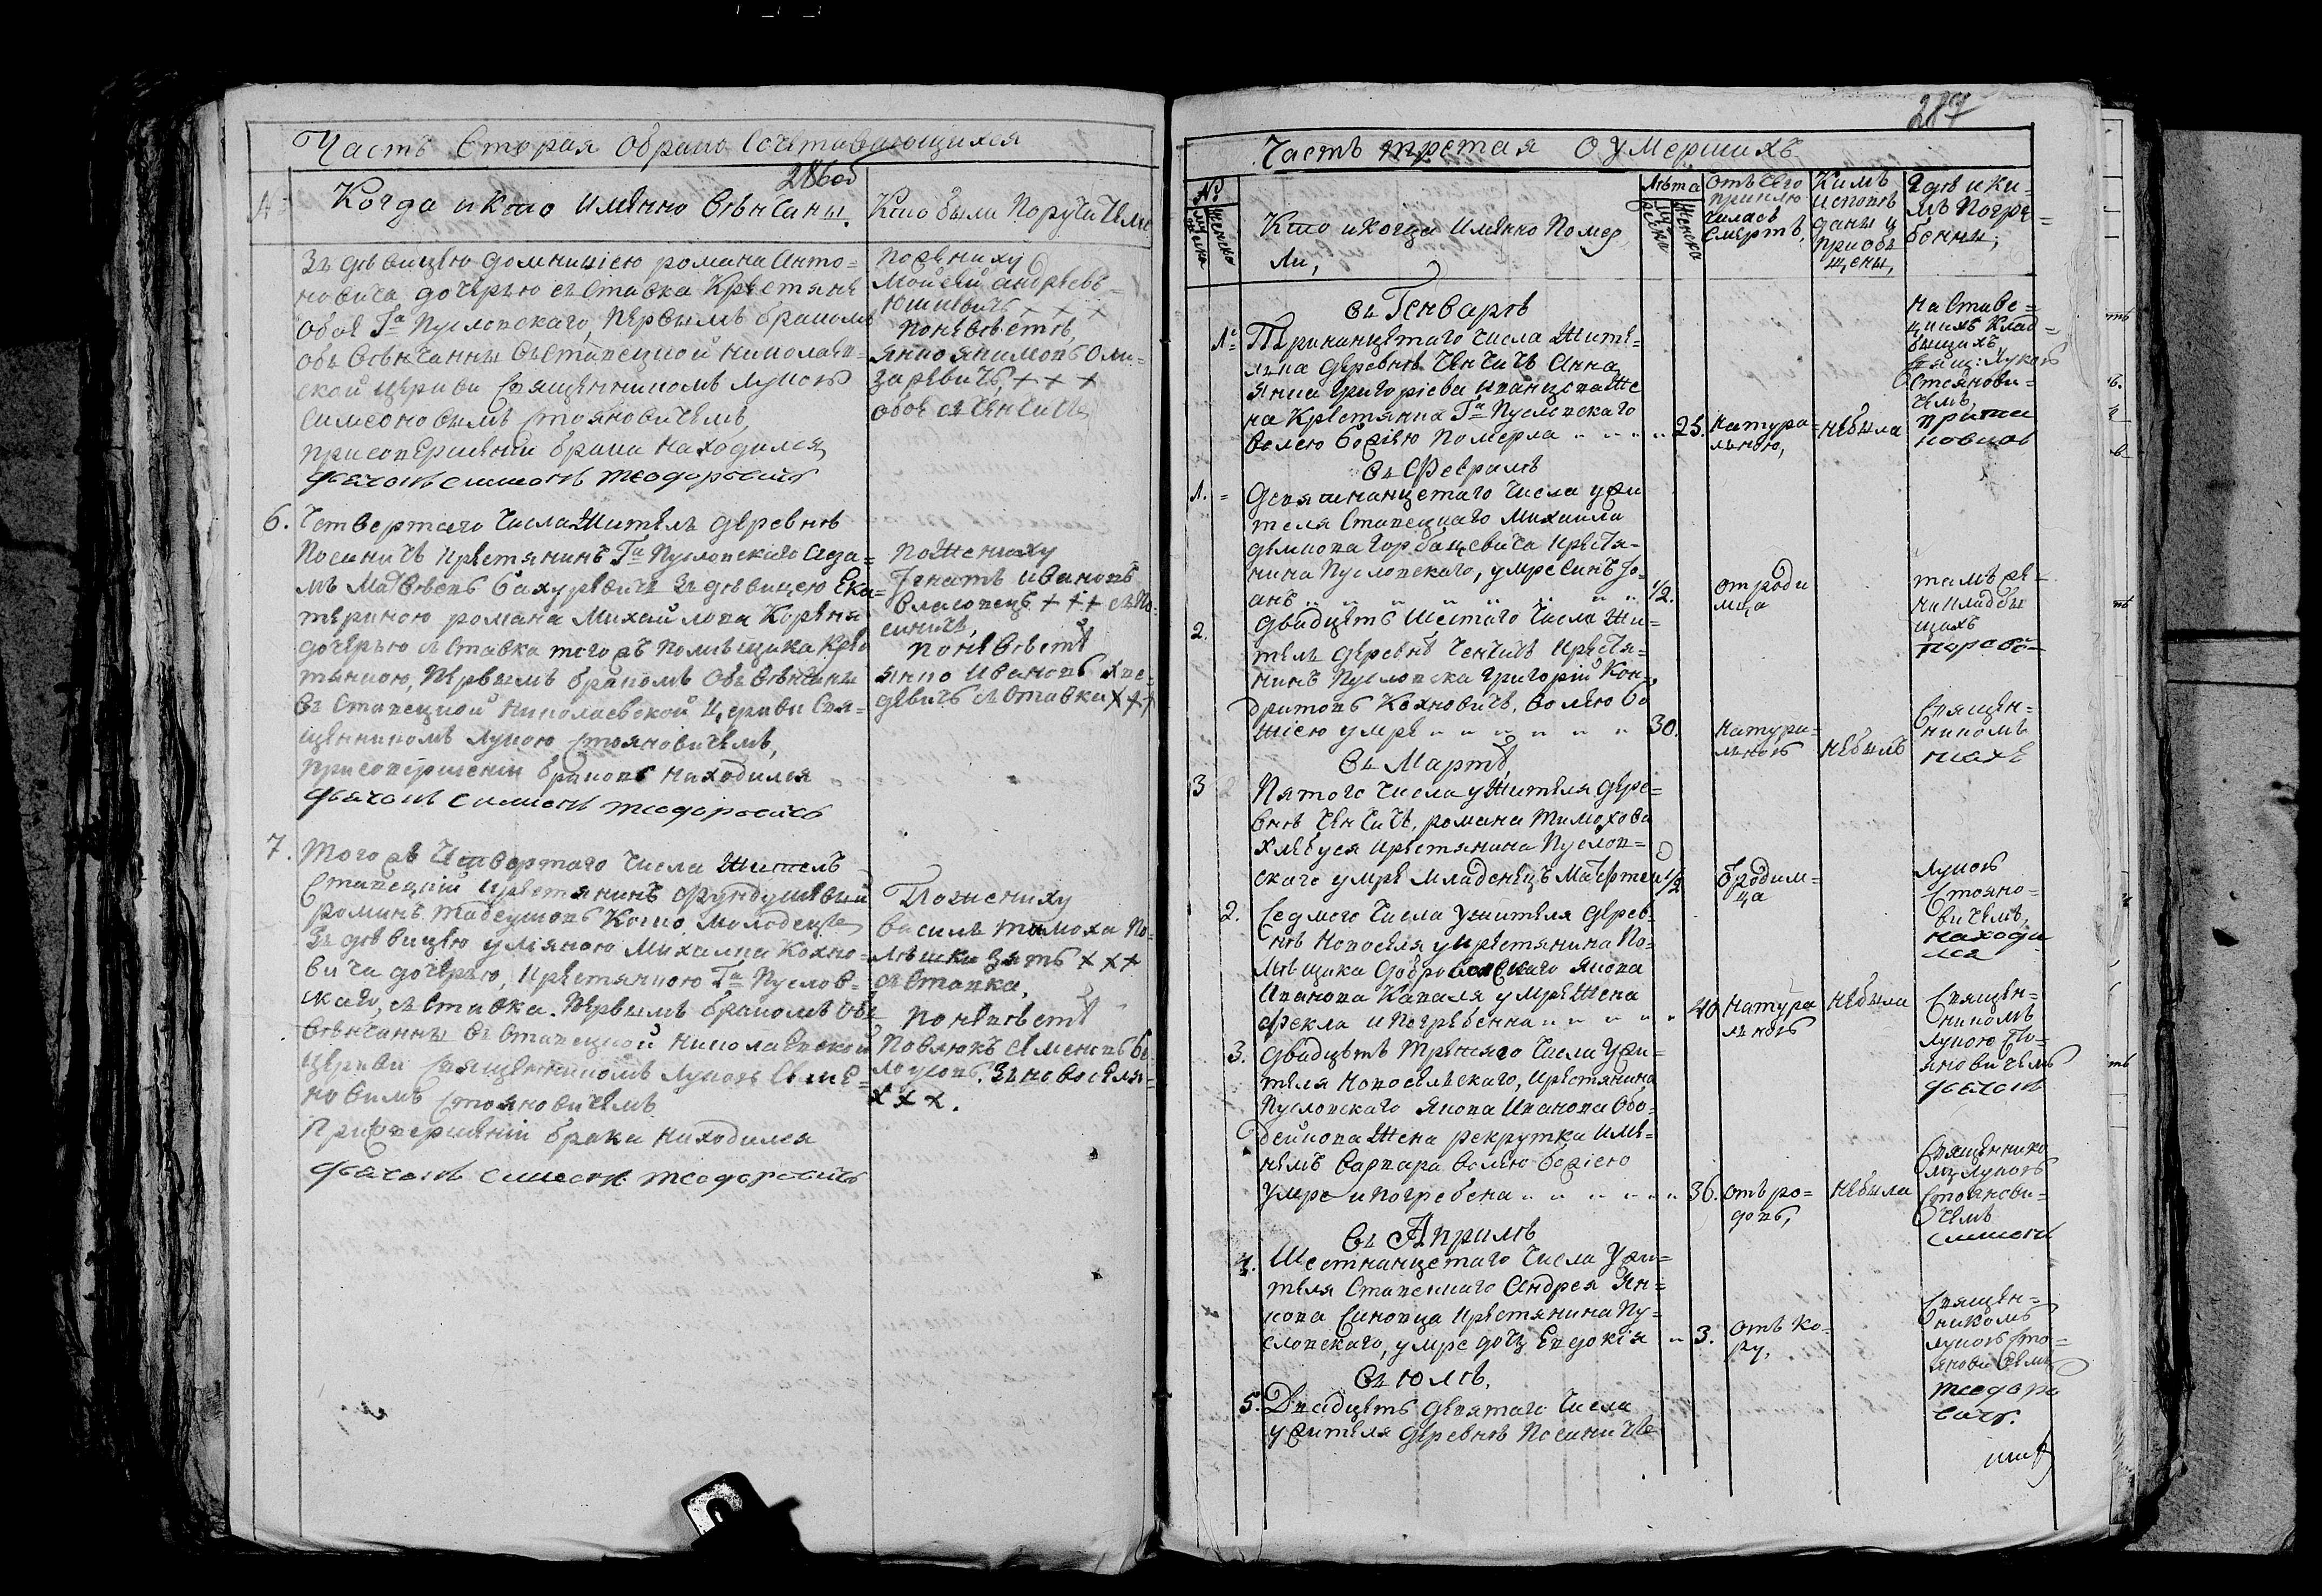 Часть Вторая О брако Сочетавающихся
286об
Когда и кто имянно венчаны.
Кто были Поручители
зъ девицею Домницею Романа Анто=
новича дочерью съ Ставка Крестяне
обое Га Пусловскаго, первымъ бракомъ
обвенчанны въ Ставецкой Николаев=
ской церкви Священникомъ Лукою
Симеоновымъ Стояновичемъ,
при совершении брака находился
дьячокъ Симеонъ Теодоровичъ
Мойсей Андреевъ
Юшкевичъ + + +
по невесте,
Янко Якимовъ
+ + +
обое съ Ченчичъ
6. Четвертаго числа Житель деревне
Посеничъ крестянинъ Га Пусловскаго Ада=
мъ Матвеевъ Бахуревичъ зъ девицею Ека=
териною Романа Михайлова Кореня
дочерью съ Ставка тогожъ помещика кре
тянкою, первымъ бракомъ обвенчаны
въ Ставецкой Николаевской церкви Свя=
щенникомъ Лукою Стояновичемъ,
при совершении браковъ находился
дьячокъ Симеонъ Теодоровичъ
по Жениху
Игнатъ Ивановъ
Власовецъ + + + съ По=
сеничъ,
по невесте
Янко Ивановъ
съ Ставка + + +
7. Тогожъ Четвертаго числа Житель
Ставецкий крестянинъ фундушевый
Романъ Тадеушовъ Кошо Молодецъ
зъ девицею Ульяною Михалка Кохно=
вича дочерью, крестянкою Га Пуслов=
скаго, съ Ставка. Первымъ бракомъ обе
венчанны въ Ставецкой Николаевской
церкви Священникомъ Лукою Симе=
новимъ Стояновичемъ
При совершении брака находился
дьячокъ Симеонъ Теодоровичъ
По жениху
Василь Тимоха По=
лешки зять + + +
съ Ставка,
по невесте
Павлюкъ Семеновъ Бе=
лоусовъ. зъ Новоселя=
+ + +.
287
Часть третая О Умершихъ
№
мужска
женска
Кто и когда имянно Помер
ли,
Лета
мужска
женска
Отъ чего
приклю
чилась
смерть,
Кимъ
исповѣ
даны и
приобѣ
щены,
Где и ки=
мъ Погре=
бенны,
въ Генваре
1. Тринанцетаго числа Жите=
лька деревне Ченчичъ Анна
Янка Григориева Жe
на Крестянка Га Пусловскаго
волею божею померла 25. натура=
льною, небыла
на Ставе=
цкихъ Клад=
бищахъ,
Свящ: Лукою
Стоянови=
чемъ,
въ Феврале
1. Девятнанцетаго числа у жи
теля Ставецкаго Михаила
Демкова Горбацевича крестя=
нина Пусловскаго, умре синъ Ю=
анъ 1/2. отроди
мца
тамъ же
на кладби
щахъ
2. Двадцеть шестаго числа Жи=
тель деревне Ченчичъ крестя=
нинъ Пусловска Григорий Кон=
дратовъ Кохновичъ. Волею бо
жiею умре 30. натура=
льною небылъ
Священ=
никомъ
въ Марте
3 Пятого числа у Жителя дере=
вне Ченчичъ, Романа Тимохова
Хлебуся крестянина Пуслов=
скаго умре младенецъ Матфей 1/2 Бродим=
ца
Лукою
Стояно=
вичемъ,
находи
лся
2. Седмого числа У жителя дерев
не Новоселя у крестянина По=
мещика Янова
Иванова Каваля умре Жена
Фекла и погребенна 40 натура
льною небыла
Священ=
никомъ
Лукою Сто=
яновичемъ
дьячокъ
3. Двадцеть третяго числа У жи=
теля Новосельскаго, крестянина
Пусловскаго Якова Иванова
Жена рекрутка име=
немъ Варвара волею божiею
умре и погребена 36. отъ ро=
довъ, небыла
Священнико
мъ Лукою
Стоянови=
чемъ
Симеонъ
въ Априле
4. Шестнанцетаго числа У жи=
теля Ставецкаго Андрея Ян=
кова Синовца крестянина Пу=
словскаго, умре дочъ Евдокiя 3. отъ ко=
ру,
Священ=
никомъ
Лукою Сто=
яновичемъ
Теодоро
вичъ.
въ Юле,
5. Двадцеть девятаго числа
у жителя деревне Посеничъ